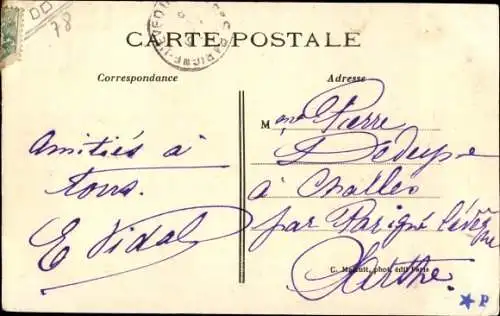 78
CARTE POSTALE
Correspondance
Adresse
Amitiés à
tous.
E Vidal
Mme Pierre
à Challes
par Parigné l'évêque
Sarthe.
C. Malcuit, phot. édit Paris
P